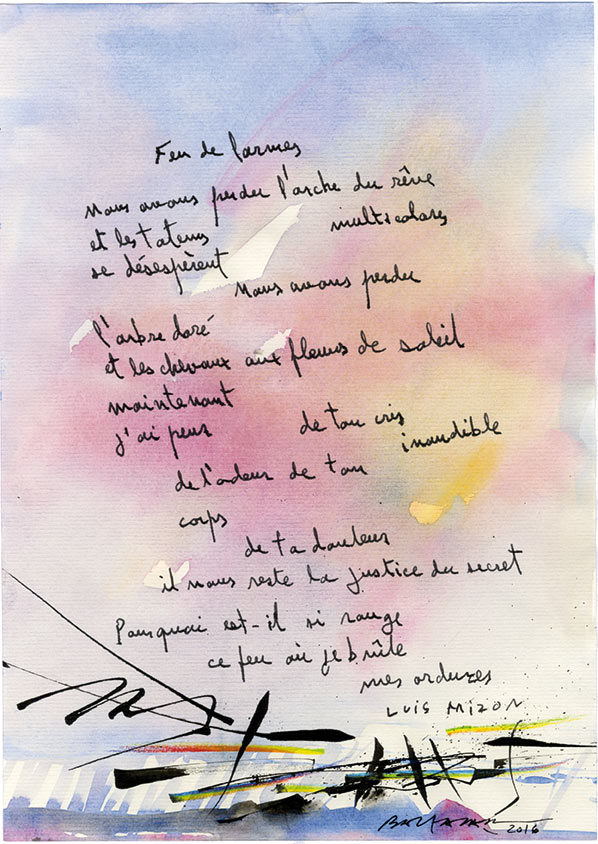 Feu de larmes
Nous avons perdu l'arche du rêve
multicolores
et les totems
se désespèrent
Nous avons perdu
l'arbre doré
et les chevaux aux fleurs de soleil
maintenant
j'ai peur de ton cris
inaudible
de l'odeur de ton
corps
de ta douleur
il nous reste la justice du secret
Pourquoi est-il si rouge
ce feu où je brûle
mes ordures
LUIS MIZON
2016